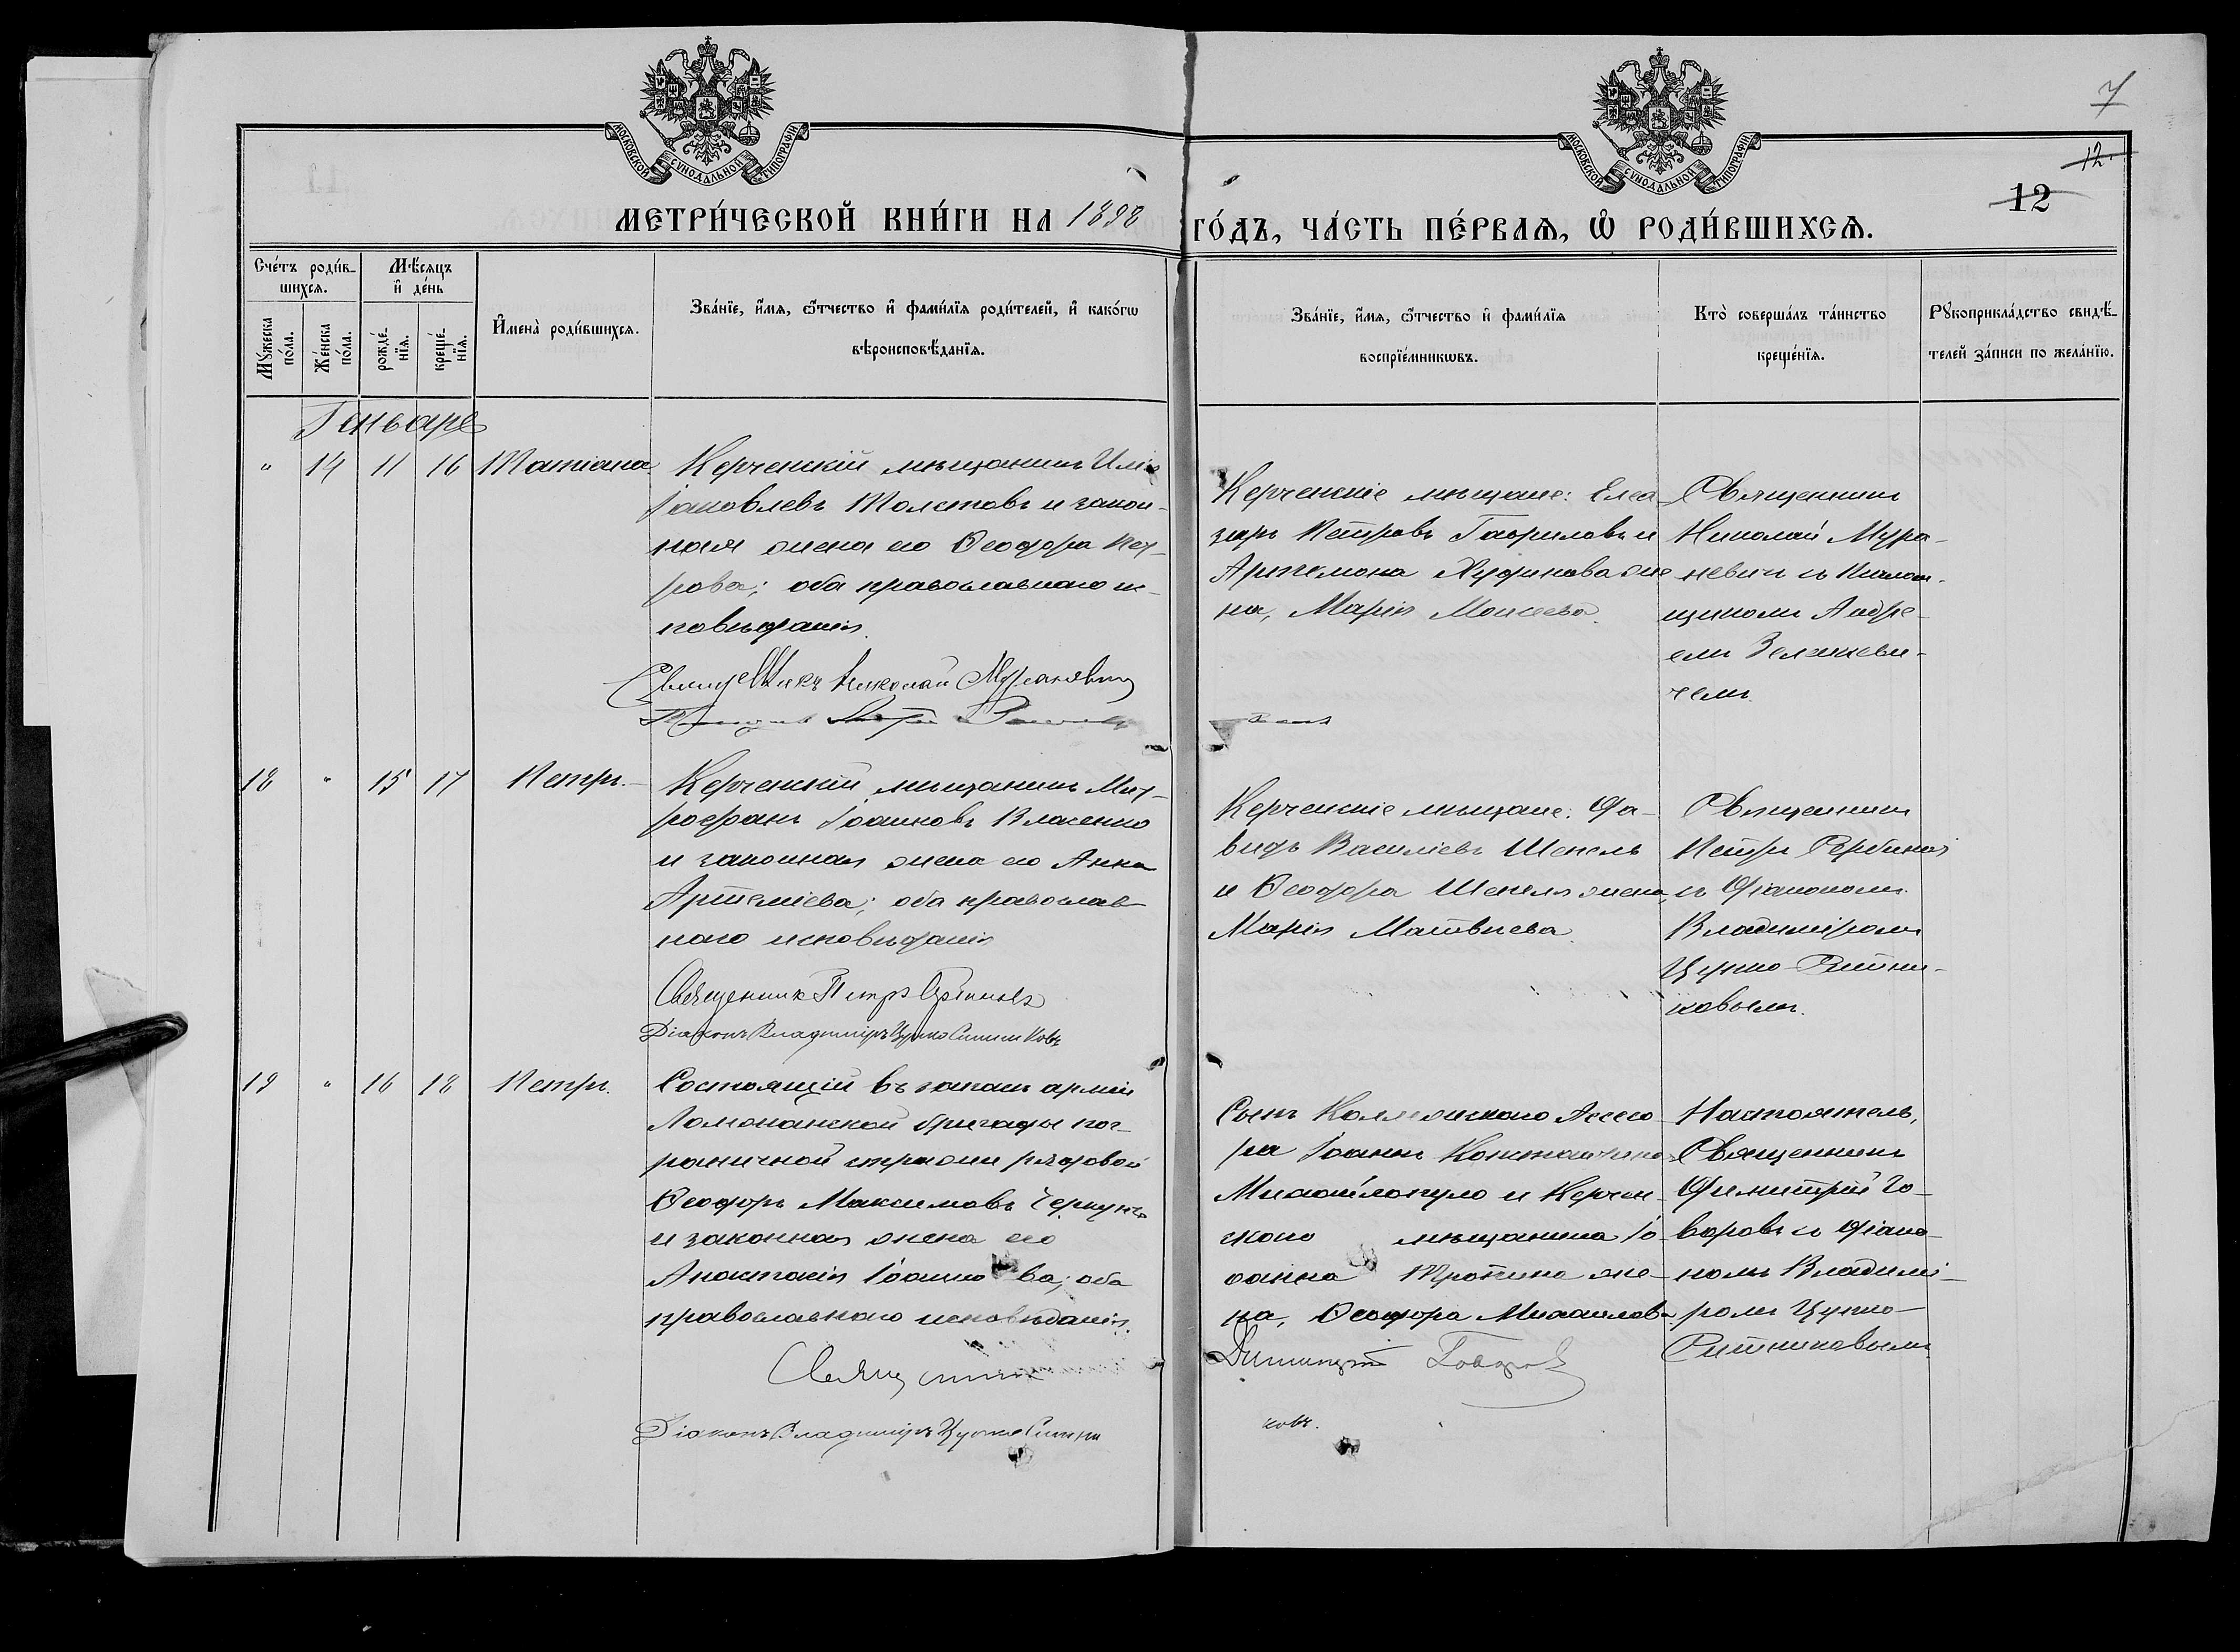 7
12
12
МОСКОВСКОЙ СѴНОДАЛЬНОЙ ТИПОГРАФІИ
МОСКОВСКОЙ СѴНОДАЛЬНОЙ ТИПОГРАФІИ
МЕТРИ́ЧЕСКОЙ КНИ́ГИ НА 1898 ГО́ДЪ, ЧА́СТЬ ПЕ́РВАѦ, Ѡ҆ РОДИ́ВШИХСѦ.
Сче́тъ роди́в-
шихсѧ.
Мꙋ́жеска
по́ла.
Же́нска
по́ла.
Мѣ́сѧцъ
и҆ де́нь
рожде́-
нїѧ.
креще́-
нїѧ.
И҆мена̀ роди́вшихсѧ.
Зва́нїе, и҆́мѧ, ѻ҆́тчество и҆ фами́лїѧ роди́телей, и҆ како́гѡ
вѣроисповѣ́данїѧ.
Зва́нїе, и҆́мѧ, ѻ҆́тчество и҆ фами́лїѧ
воспрїе́мникѡвъ.
Кто̀ соверша́лъ та́инство
креще́нїѧ.
Рꙋкоприкла́дство свидѣ́-
телей за́писи по жела́нїю.
Генварь
" 14 11 16 Татіана.
Керченскій мѣщанинъ Илія
Іаковлевъ Толстовъ и закон-
ная жена его Ѳеодора Пет-
рова; оба православнаго ис-
повѣданія.
Священникъ Николай Мураневич
Керченскіе мѣщане: Елеа-
заръ Петровъ Гавриловъ и
Артемона жe-
на, Марія Моисеева.
Священникъ
Николай Мура-
невич съ Псалом-
щикомъ Андре-
емъ
чемъ.
18 " 15 17 Петръ.
Керченскій мѣщанинъ Мит-
рофанъ Іоанновъ Власенко
и законная жена его Анна
Артеміева; оба православ-
наго исповѣданія
Священник Петръ Сербинов
Діаконъ Владимиръ Цурко Ситниковъ
Керченскіе мѣщане: Да-
видъ Василіевъ Шепель
и Ѳеодора Шепеля жена,
Марія Матвѣева.
Священникъ
Петръ Сербиновъ
съ Діакономъ
Владиміромъ
Цурко-Ситни-
ковымъ.
19 " 16 18 Петръ.
Состоящій въ запасѣ арміи
Ломжанской бригады пог-
раничной стражи рядовой
Ѳеодоръ Максимовъ
и законная жена его
Анастасія Іоаннова; оба
православнаго исповѣданія.
Священникъ Димитрій Говоров
Діаконъ Владимиръ Цурко Ситни
ковъ.
Сынъ Коллежскаго Ассесо-
ра Іоаннъ Константиновъ
Михайлопуло и Керчен-
скаго мѣщанина Іо-
анна же-
на, Ѳеодора Михаилова.
Настоятель,
Священникъ
Димитрій Го-
воровъ съ Діако-
номъ Владимі-
ромъ Цурко-
Ситниковымъ.